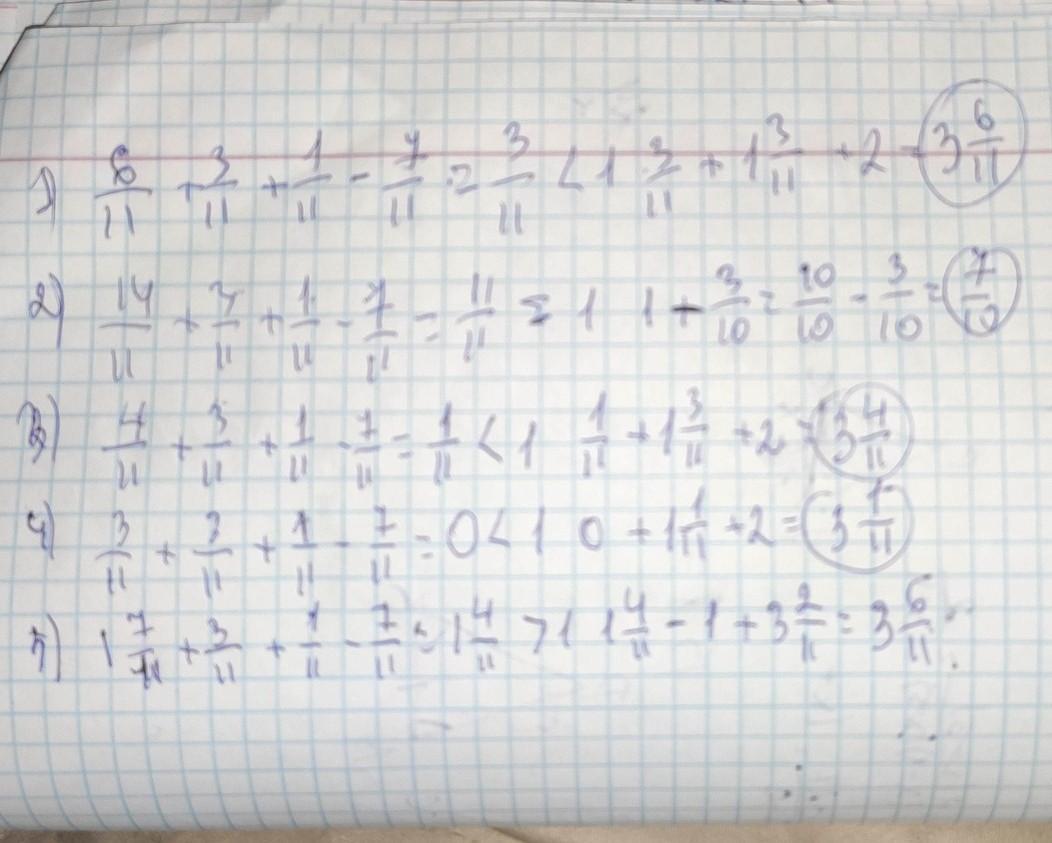 1) 6/11 + 3/11 + 1/11 - 7/11 = 3/11 < 1 3/11 + 1 3/11 + 2 = 3 6/11
2) 14/11 + 3/11 + 1/11 - 7/11 = 11/11 = 1 1 - 3/10 = 10/10 - 3/10 = 7/10
3) 4/11 + 3/11 + 1/11 - 7/11 = 1/11 < 1 1/11 + 1 3/11 + 2 = 3 4/11
4) 3/11 + 3/11 + 1/11 - 7/11 = 0 < 1 0 + 1 1/11 + 2 = 3 1/11
5) 1 7/11 + 3/11 + 1/11 - 7/11 = 1 4/11 > 1 1 4/11 - 1 + 3 2/11 = 3 6/11